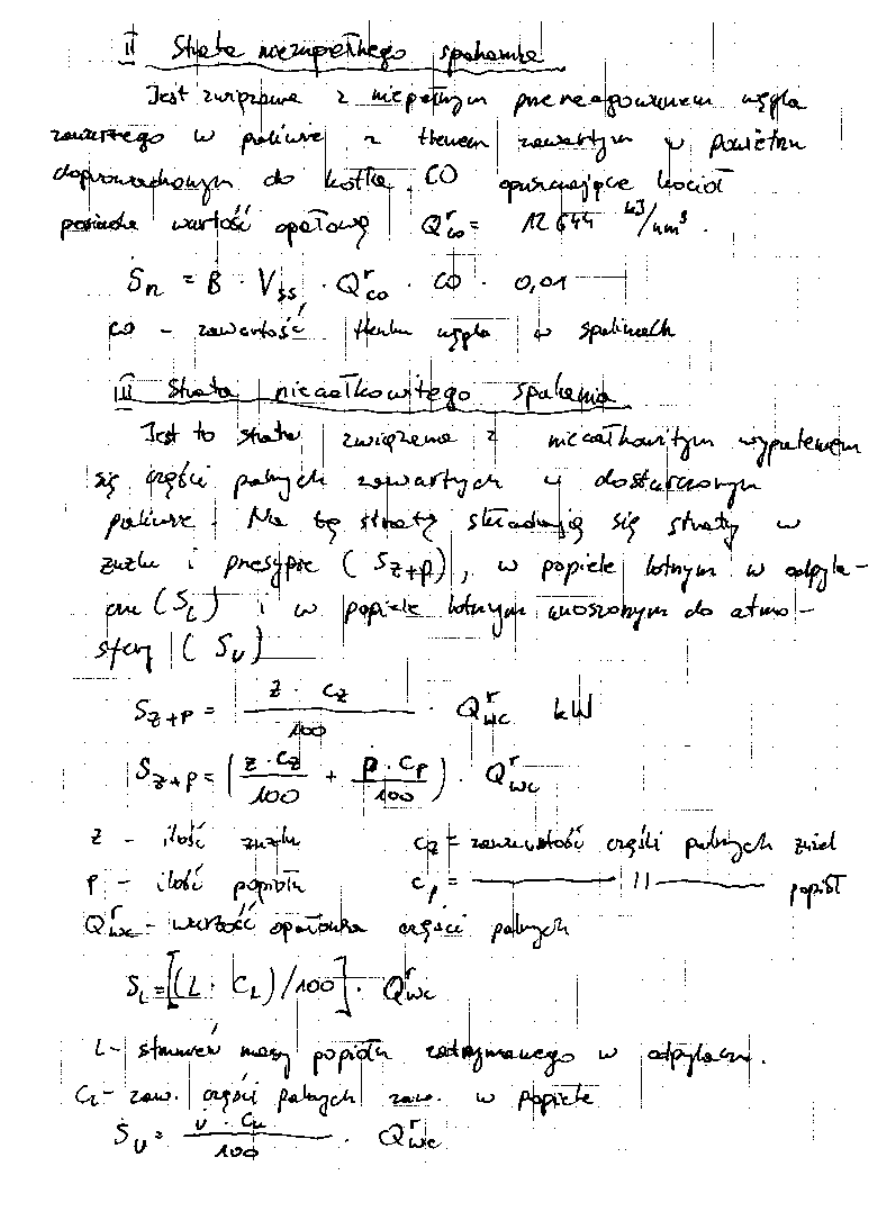 II Strata niezupełnego spalania
Jest związana z niepełnym przereagowaniem węgla
zawartego w paliwie z tlenem zawartym w powietrzu
doprowadzonym do kotła. CO opuszczające kocioł
posiada wartość opałową Q^r_co = 12 644 kJ/um³.
S_n = B · V_ss · Q^r_co · CO · 0,01
CO - zawartość tlenku węgla w spalinach
III Strata niecałkowitego spalania
Jest to strata związana z niecałkowitym wypaleniem
się części palnych zawartych w dostarczonym
paliwie. Na tę stratę składają się straty w
żużlu i przesypie (S_z+p), w popiele lotnym w odpyla-
czu (S_L) i w popiele lotnym unoszonym do atmo-
sfery (S_U)
S_z+p = z · c_z / 100 · Q^r_wc kW
S_z+p = (z · c_z / 100 + p · c_p / 100) · Q^r_wc
z - ilość żużlu c_z = zawartość części palnych żużel
p - ilość popiołu c_p = ——— 11 ——— popiół
Q^r_wc - wartość opałowa części palnych
S_L = [(L · C_L)/100] · Q^r_wc
L - strumień masy popiołu zatrzymanego w odpylaczu.
C_L - zaw. części palnych zaw. w popiele
S_U = U · C_u / 100 · Q^r_wc